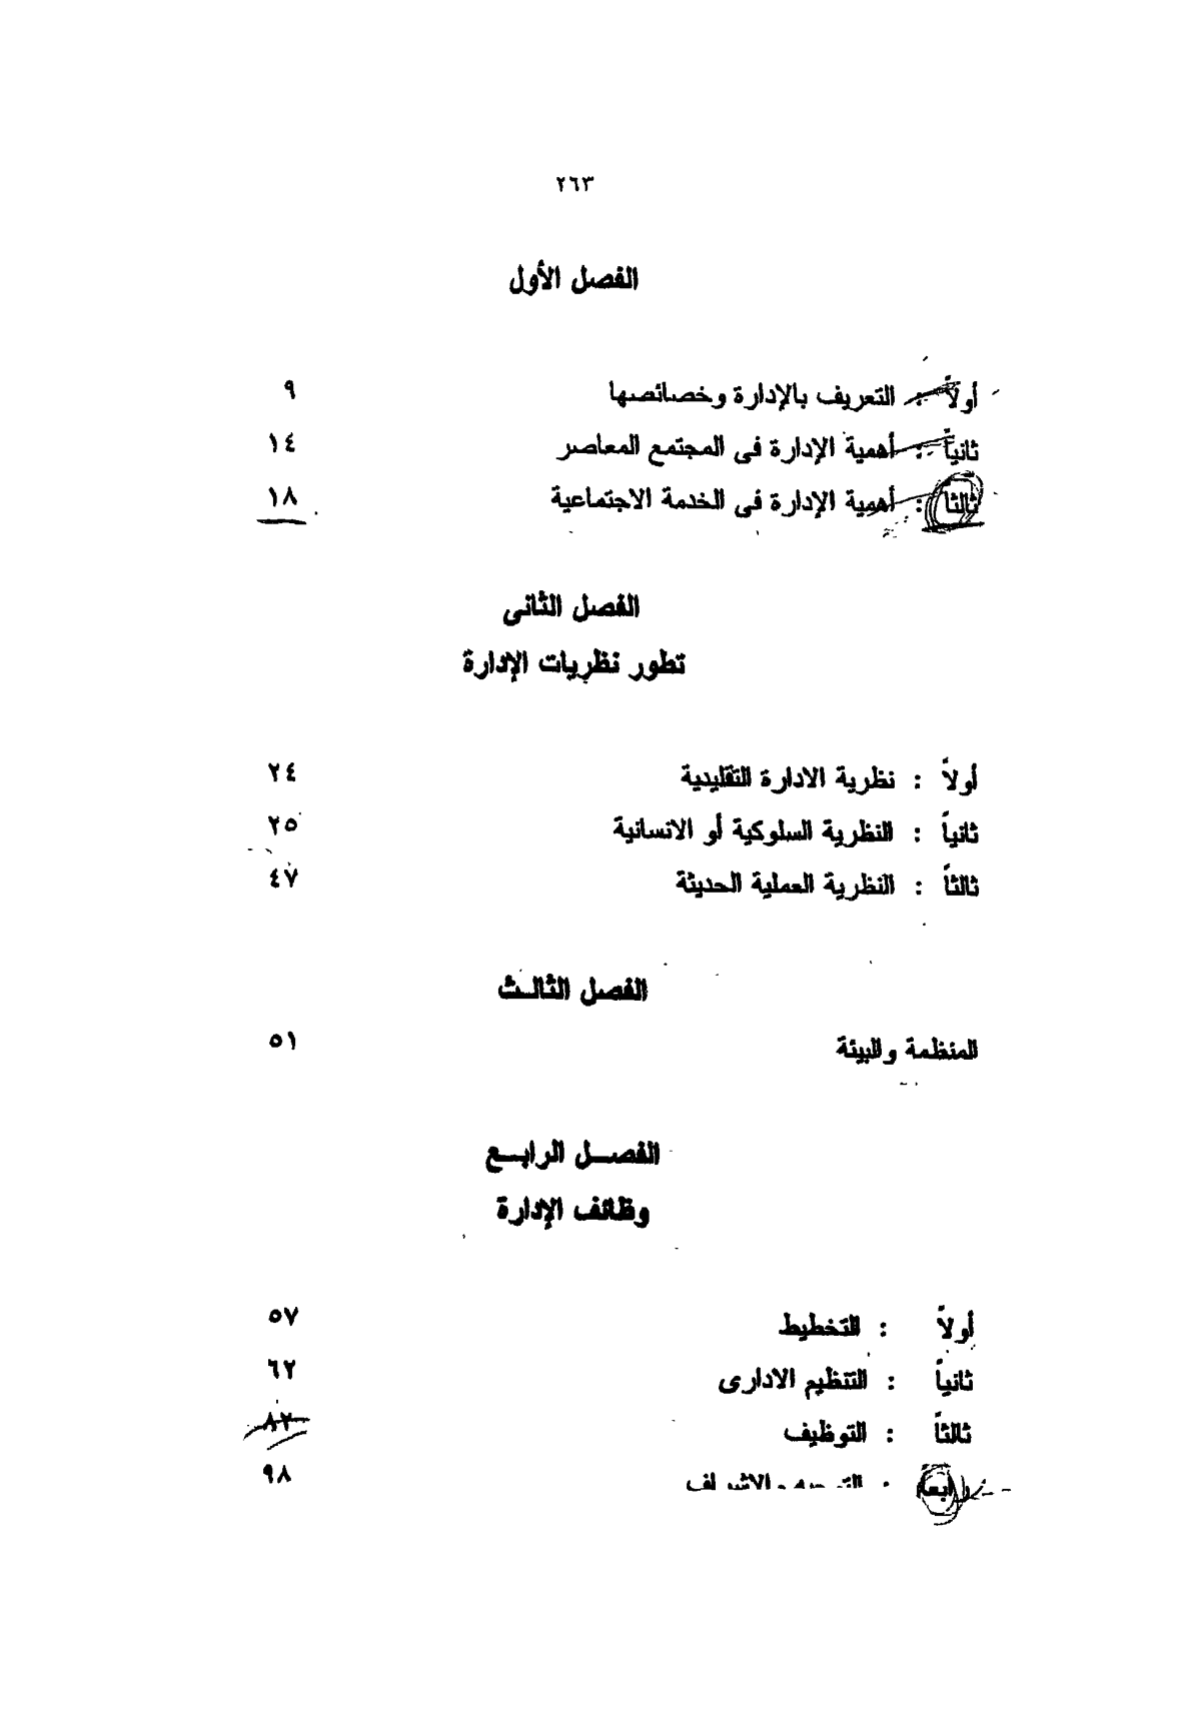 ٢٦٣
الفصل الأول
أولاً : التعريف بالإدارة وخصائصها ٩
ثانياً : أهمية الإدارة فى المجتمع المعاصر ١٤
ثالثاً : أهمية الإدارة فى الخدمة الاجتماعية ١٨
الفصل الثانى
تطور نظريات الإدارة
أولاً : نظرية الادارة التقليدية ٢٤
ثانياً : النظرية السلوكية أو الانسانية ٢٥
ثالثاً : النظرية العملية الحديثة ٤٧
الفصل الثالـث
المنظمة والبيئة ٥١
الفصــل الرابــع
وظائف الإدارة
أولاً : التخطيط ٥٧
ثانياً : التنظيم الادارى ٦٢
ثالثاً : التوظيف ٨٢
رابعاً : التوجيه والاشراف ٩٨